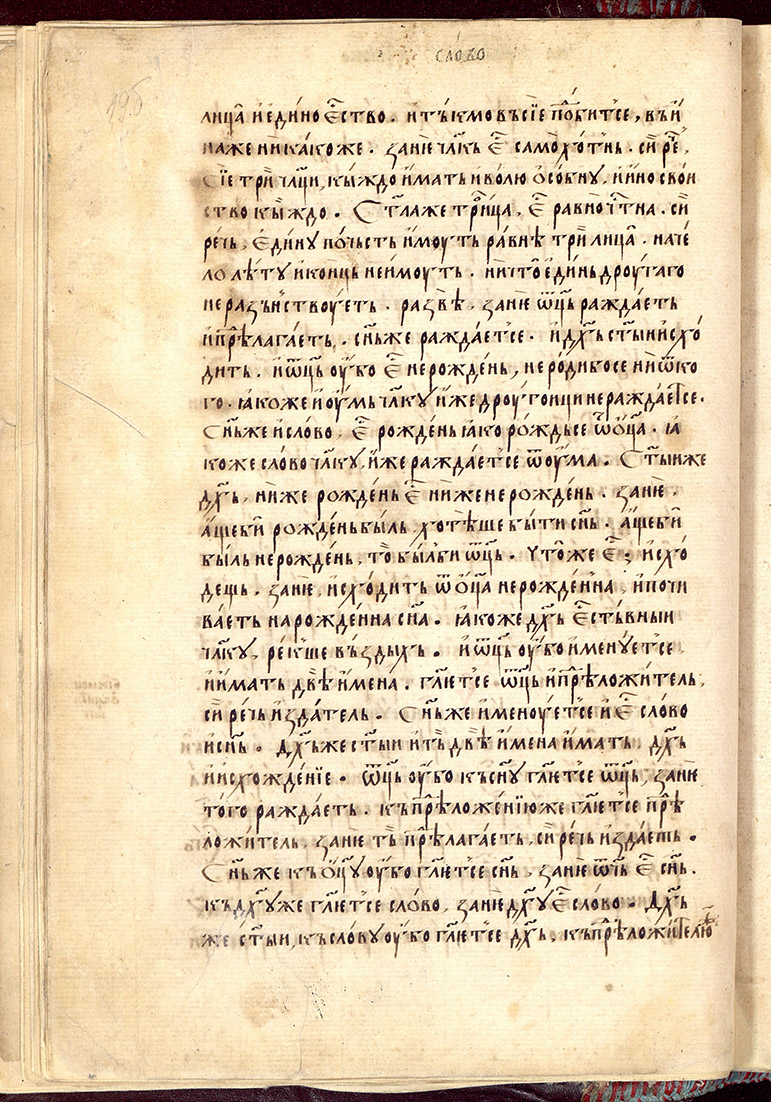 слово
лица̑ и҆ є҆ди́но є҆ство . и҆ тъ́кмо въ сїе по́бит͛се , въ и҆
на же ника́коже . за́нїе чл҃къ є҆ само́хотнь . си́ рѣ .
Сїе три́ ча́щи , кы́ждо и҆мать и҆ волю ѻ҆со́бну , и҆ и҆но свои
ство кы́ждо . Ст҃аа же тро́ица , є҆ равно чт҃на . си́
речь , є҆ди́ну по́чьсть и҆моуть ра́внѣ три́ лица̑ . наче́
ло лѣ́ту и҆ коньць не и҆моуть . ничто̀ є҆ди́нь дроугаго
не разъньствоуеть . ра́звѣ , за́нїе ѿц҃ь ражда́еть
и҆ прѣлага́еть , сн҃ь же ражда́ет͛се . и҆ дх҃ь ст҃ыи и҆схо́
дить . и҆ ѿц҃ь оу҆бо є҆ не рожде́нь , не роди́ бо се ни ѿ ко
го . ꙗ҆коже и҆ оу҆мь чл҃ку и҆же дроугоищи не ражда́ет͛се .
Сн҃ь же и҆ слово , є҆ рожде́нь ꙗ҆ко ро́ждьсе ѿ ѻ҆ц҃а . ꙗ҆
коже сло́во чл҃ку , и҆же ража́ет͛се ѿ оу҆ма . Ст҃ыи же
дх҃ь , ниже рожде́нь є҆ ниже не рожде́нь . за́нїе ,
а҆ще би́ рожде́нь быль , хотѣ́ше бы́ти сн҃ь . а҆ще би́
быль не рожде́нь , то̀ бы́л би ѿц҃ь . что̀ же є҆ ; и҆схо́
дещь . за́нїе , и҆схо́дить ѿ ѻ҆ц҃а не рожде́нна , и҆ почи
ва́еть на рожде́нна сн҃а . ꙗ҆коже дх҃ь є҆сте́вныи
чл҃ку , ре́кше въздыхь . и҆ ѿц҃ь оу҆бо и҆мену́ет͛се
и҆ и҆мать двѣ и҆мена . гл҃ет͛се ѿц҃ь и҆ прѣложи́тель ,
си́ речь и҆зда́тель . Сн҃ь же и҆мену́ет͛се и҆ є҆ сло́во
и҆ сн҃ь . дх҃ь же ст҃ыи и҆ тъ̀ двѣ и҆мена и҆мать . дх҃ь
и҆ и҆схожде́нїе . ѿц҃ь оу҆бо къ сн҃у гл҃ет͛се ѿц҃ь , за́нїе
того̀ ражда́еть . къ прѣложе́нїю же гл҃ет͛се прѣ
ложи́тель , за́нїе тъ̀ прѣлага́еть , си́ речь и҆здае́ть .
Сн҃ь же къ ѻ҆ц҃у оу҆бо гл҃ет͛се сн҃ь , за́нїе ѿч҃ь є҆ сн҃ь .
къ дх҃у же гл҃ет͛се сло́во , за́нїе дх҃у є҆ сло́во . Дх҃ь
же ст҃ыи , къ слову оу҆бо гл҃ет͛се дх҃ь , къ прѣложи́телю